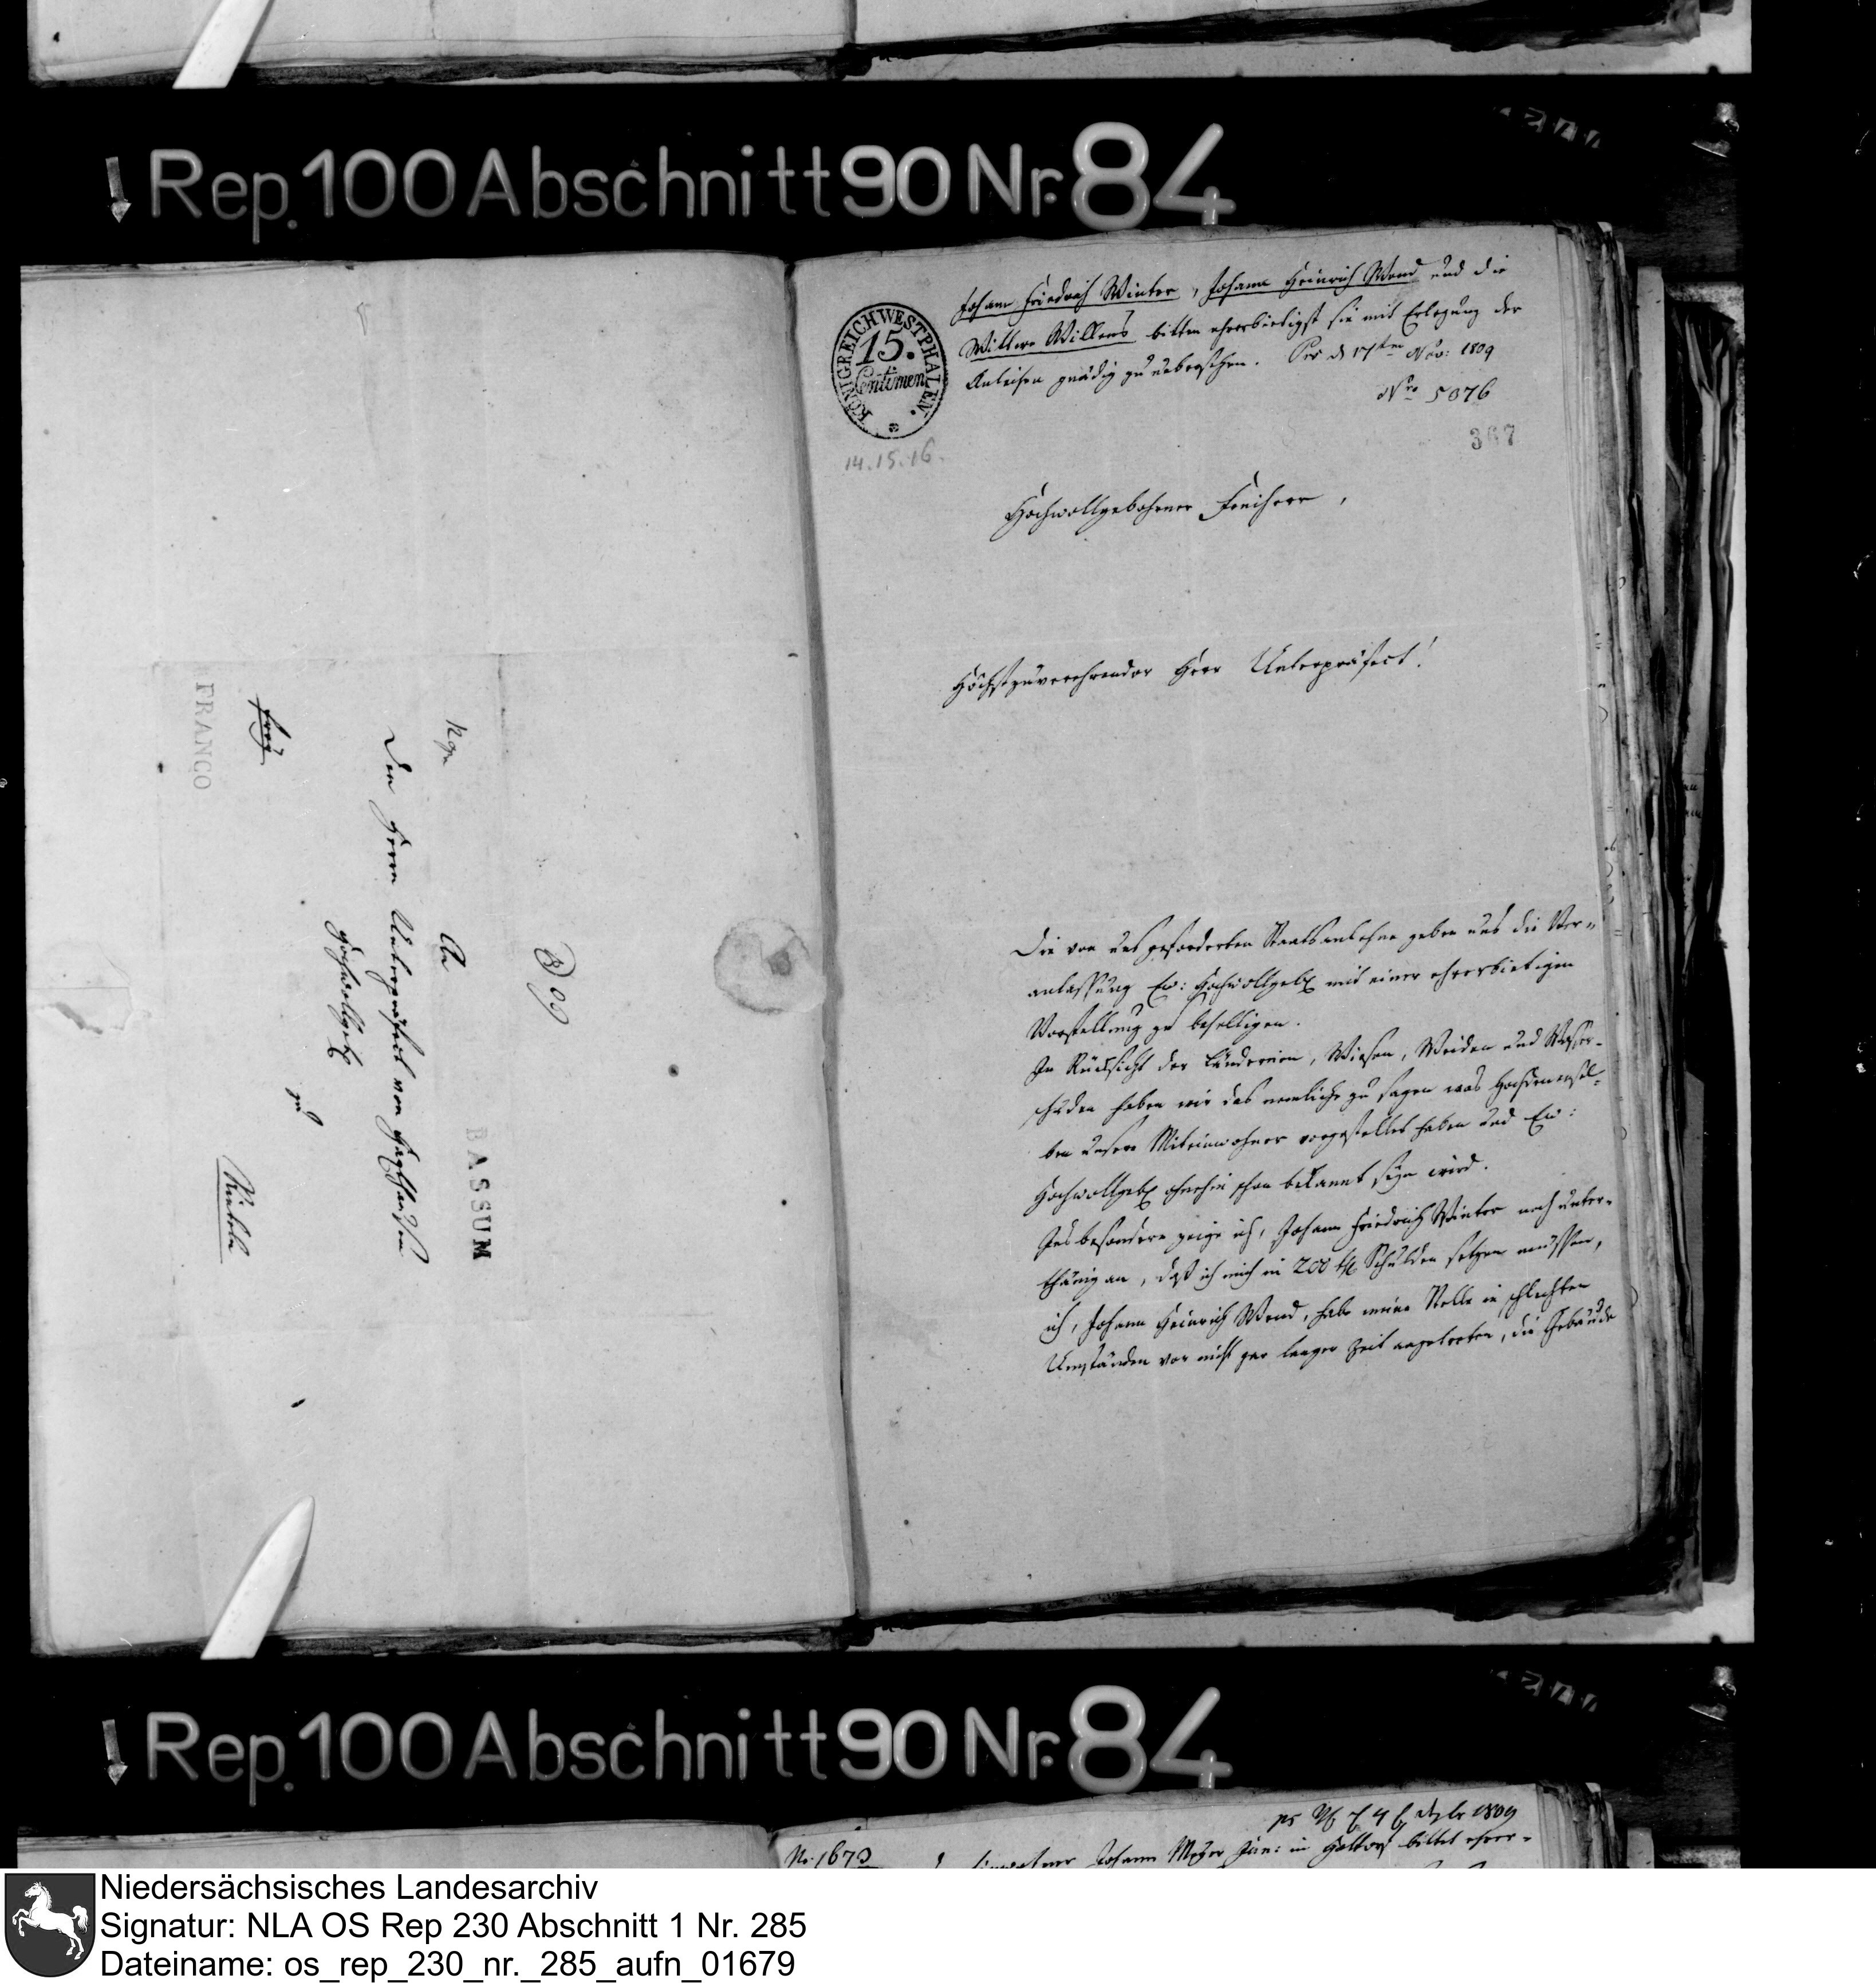 Rep. 100 Abschnitt 90 Nr. 84
FRANCO
frey
An
Den Herrn Unterpräfect von
Hochwollgeb
zu
Rinteln
BASSUM
KÖNIGREICH WESTPHALEN.
15.
Centimen
14.15.16.
Johann Friedrich Winter, Johann Heinrich Wend und die
Wittwe Willens bitten ehrerbietigst sie mit Erlegung der
Anleihen gnädig zu uebersehen. Prs d 17ten Nov: 1809
Nro 5076
367
Hochwollgebohrner Freiherr,
Höchstzuverehrender Herr Unterpräfect!
Die von uns geforderten Staatsanlehne geben uns die Ver-
anlassung Ew: Hochwollgeb mit einer ehrerbietigen
Vorstellung zu behelligen.
In Rücksicht der Ländereien, Wiesen, Weiden und Wasser-
schäden haben wir das nemliche zu sagen was Hochdenensel-
ben unsere Miteinwohner vorgestellet haben und Ew:
Hochwollgeb ohnehin schon bekannt seyn wird.
Insbesondere zeige ich, Johann Friedrich Winter noch unter-
thänig an, daß ich mich in 200 Schulden setzen müssen,
ich, Johann Heinrich Wend, habe meine Stelle in schlechten
Umständen vor nicht gar langer Zeit angetreten, die Gebäude
Rep. 100 Abschnitt 90 Nr. 84
1809
No. 1673
Johann Meyer Jun: in bittet ehrer-
Niedersächsisches Landesarchiv
Signatur: NLA OS Rep 230 Abschnitt 1 Nr. 285
Dateiname: os_rep_230_nr._285_aufn_01679